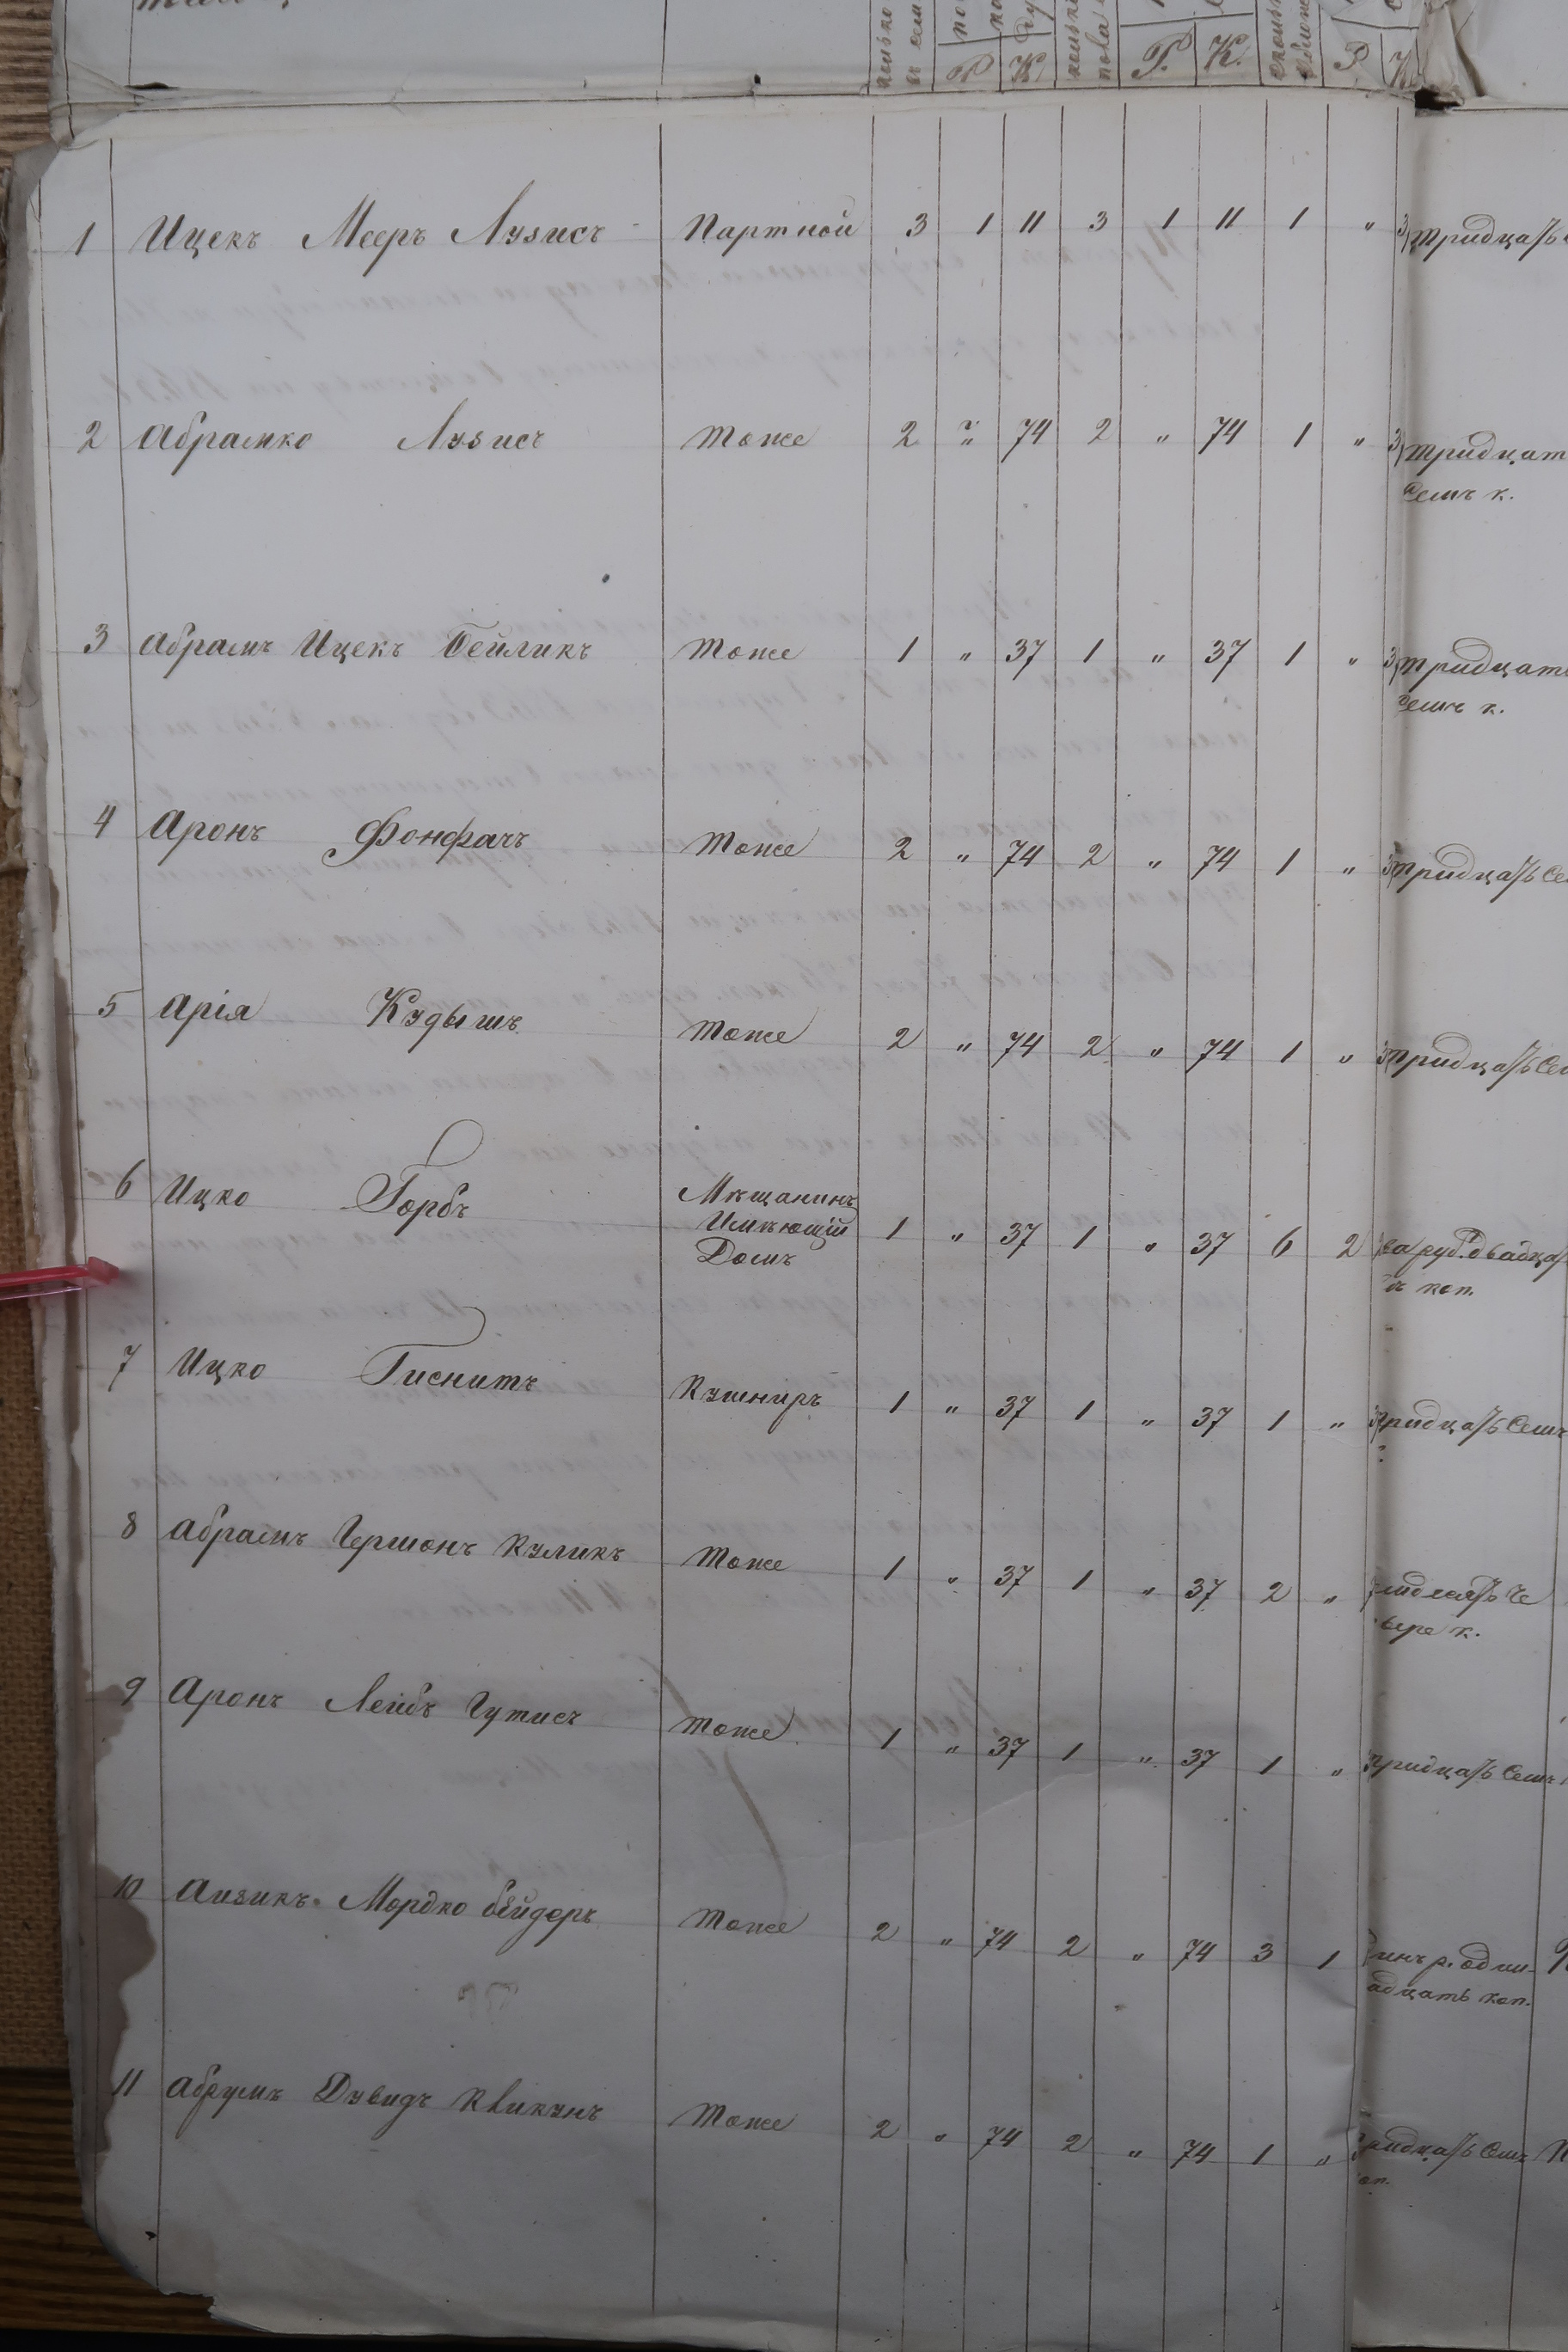 Р К. Р. К. Р К
1 Ицекъ Мееръ Лузисъ Партной 3 1 11 3 1 11 1 " тридцать
2 Абрамко Лузисъ Тоже 2 " 74 2 " 74 1 " тридцат
семъ к.
3 Абрамъ Ицекъ Бейликъ Тоже 1 " 37 1 " 37 1 " тридцать
семъ к.
4 Аронъ Фонфачъ Тоже 2 " 74 2 " 74 1 " тридцать се
5 Арія Кудышъ Тоже 2 " 74 2 " 74 1 " тридцать сем
6 Ицко Горбъ Мѣщанинъ
Имѣющій
Домъ 1 " 37 1 " 37 6 2 ва руб. двадца
ъ коп.
7 Ицко Гиснитъ Кушниръ 1 " 37 1 " 37 1 " тридцать семъ
8 Абрамъ Гершонъ Куликъ Тоже 1 " 37 1 " 37 2 "
ыре к.
9 Аронъ Лейбъ Гутисъ Тоже 1 " 37 1 " 37 1 " тридцать семъ
10 Аизикъ Мордко Бейдеръ Тоже 2 " 74 2 " 74 3 1 инъ р. оди-
адцать коп.
11 Абрумъ Дувидъ Квикунъ Тоже 2 " 74 2 " 74 1 " ридцать семъ
оп.